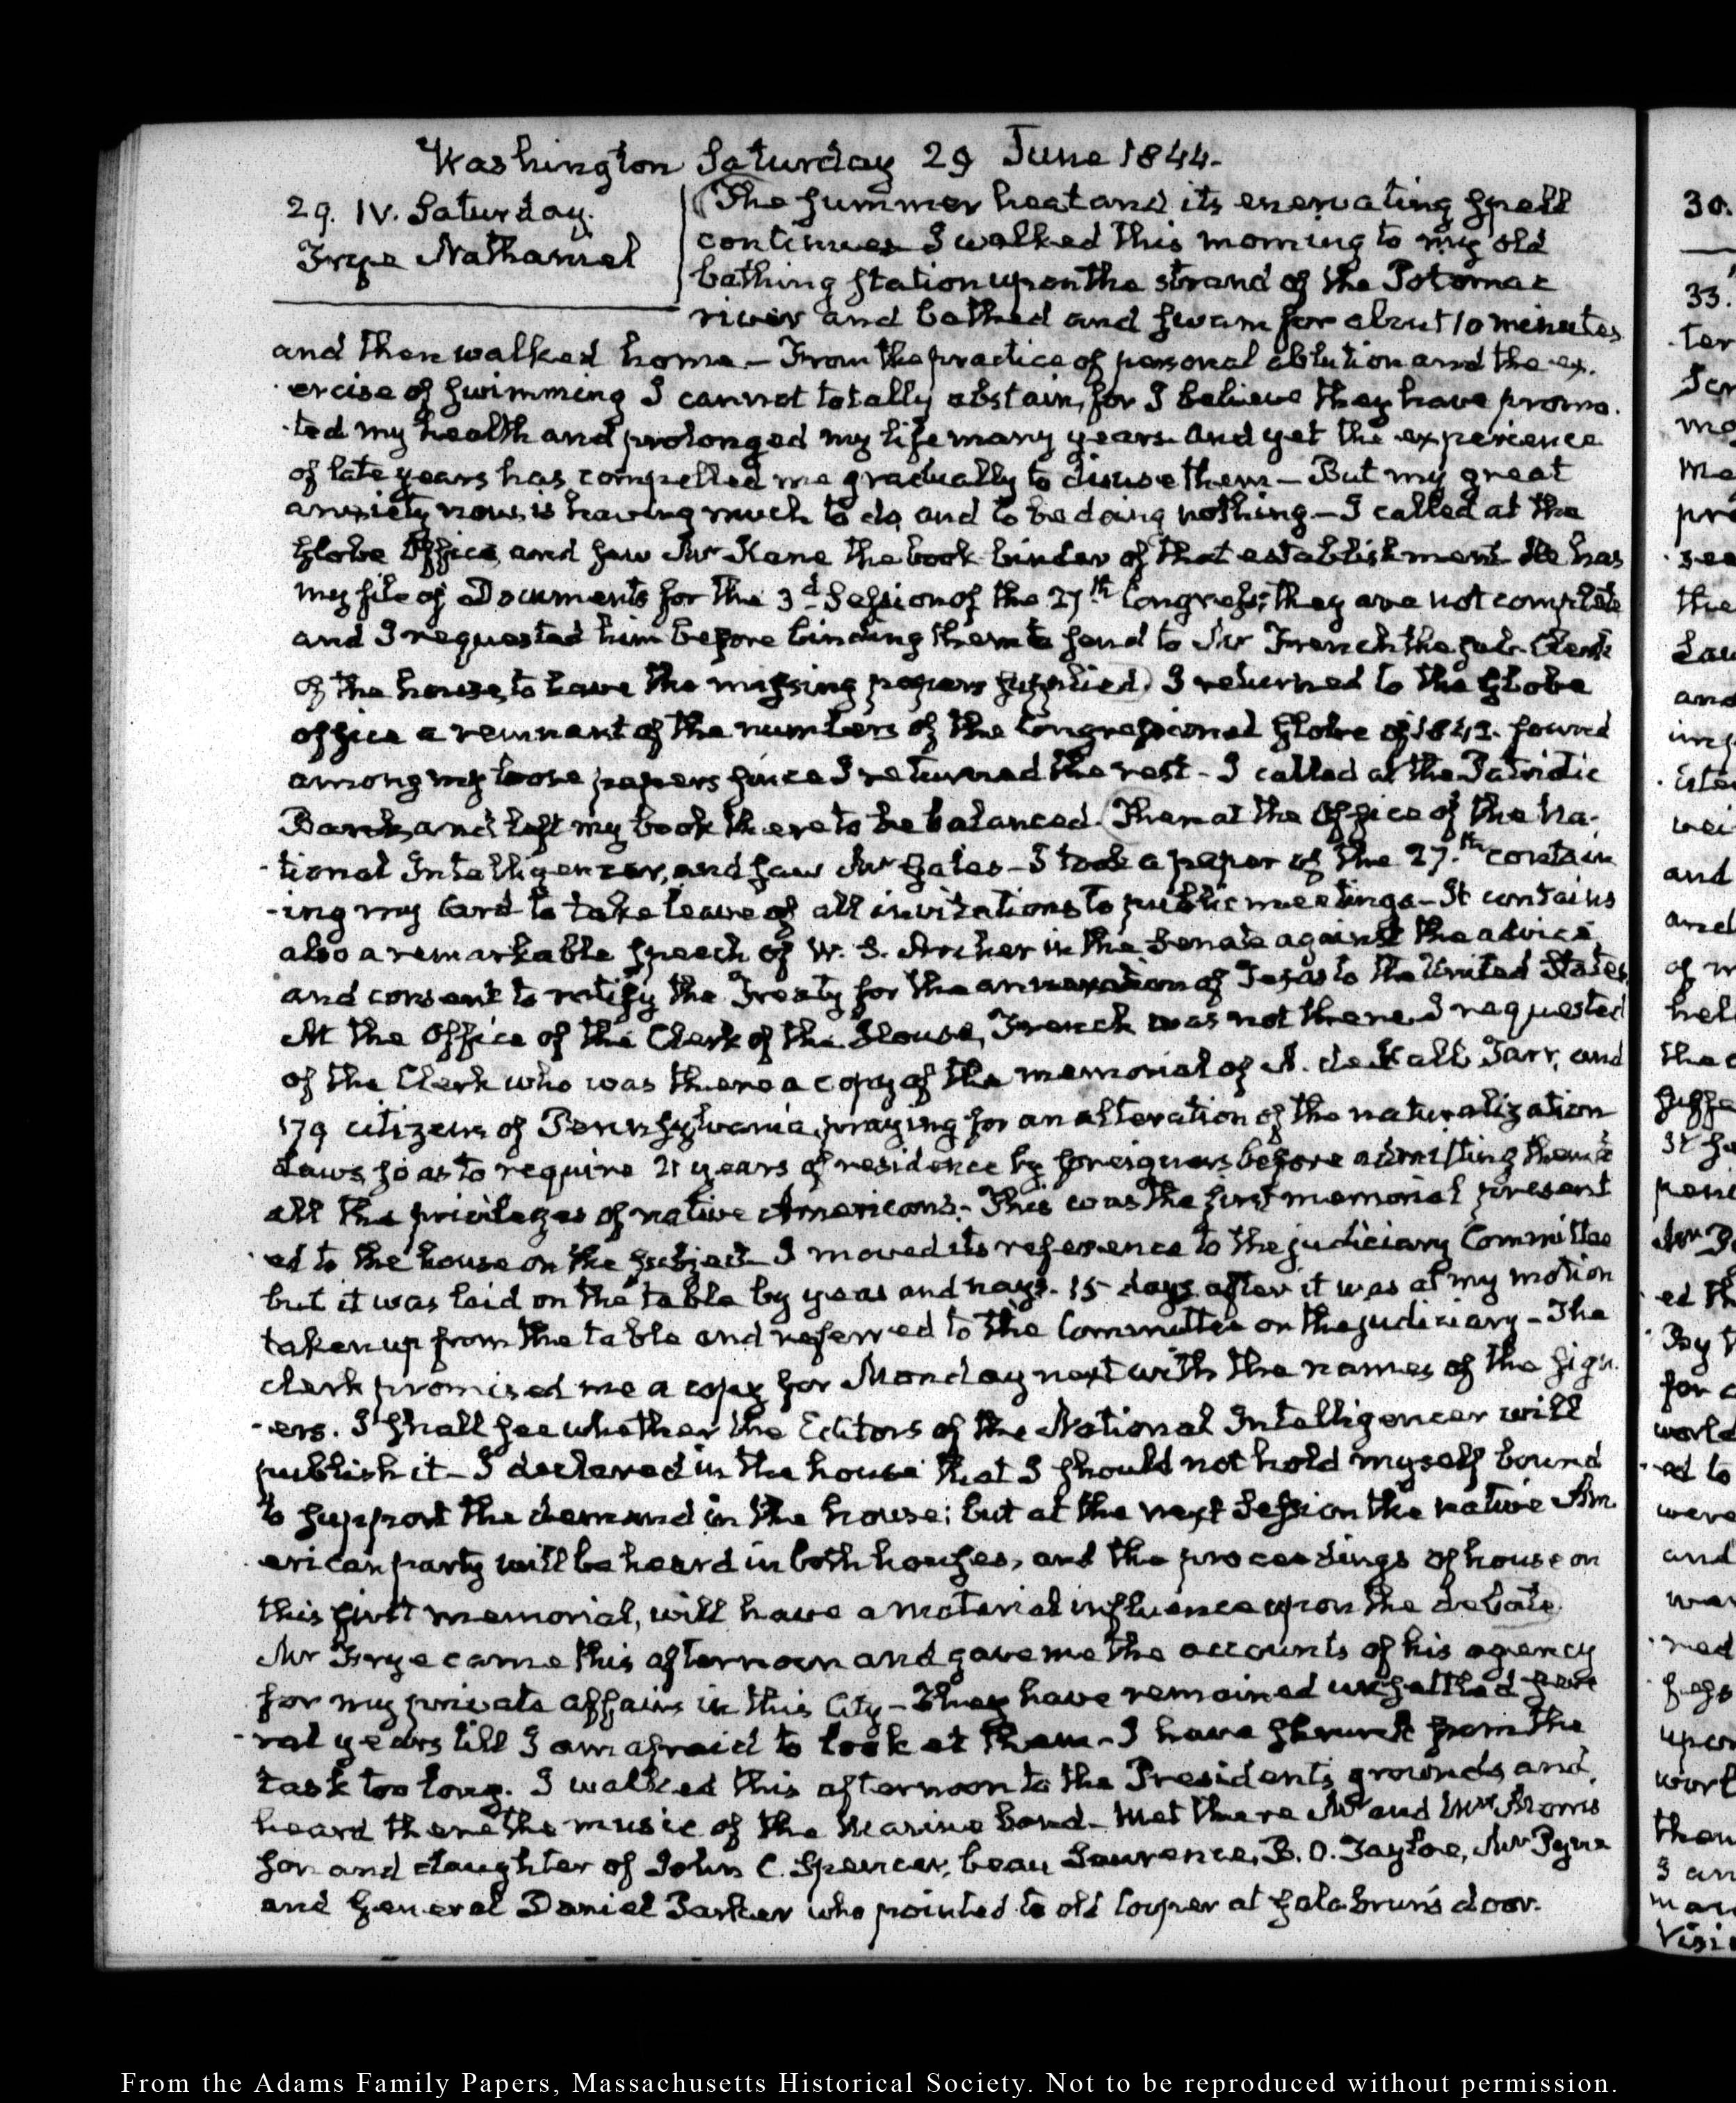 Washington Saturday 29 June 1844.
29. IV. Saturday.
Frye Nathaniel
The summer heat and its enervating spell
continues I walked this morning to my old
bathing station upon the strand of the Potomac
river and bathed and swam for about 10 minutes
and then walked home — From the practice of personal ablution and the ex-
ercise of swimming I cannot totally abstain, for I believe they have promo-
ted my health and prolonged my life many years and yet the experience
of late years has compelled me gradually to disuse them — But my great
anxiety now, is having much to do, and to be doing nothing — I called at the
Globe Office, and saw Mr Kane the book-binder of that establishment He has
my file of Documents for the 3d Session of the 27th Congress; they are not complete
and I requested him before binding them to send to Mr French the sub. Clerk
of the house, to have the missing papers supplied) I returned to the Globe
office a remnant of the numbers of the Congressional Globe of 1842. found
among my loose papers since I returned the rest — I called at the Patriotic
Bank, and left my book there to be balanced. Then at the Office of the Na-
tional Intelligencer, and saw Mr Gales — I took a paper of the 27th contain
ing my Card to take leave of all invitations to public meetings — It contains
also a remarkable speech of W. S. Archer in the Senate against the advice
and consent to ratify the Treaty for the annexation of Texas to the United States
At the Office of the Clerk of the House, French was not there. I requested
of the Clerk who was there a copy of the memorial of A. de Kalb Tarr, and
179 citizens of Pennsylvania, praying for an alteration of the naturalization
Laws, so as to require 21 years of residence by foreigners before admitting them to
all the privileges of native Americans. — This was the first memorial present
ed to the house on the subject — I moved its reference to the judiciary Committee
but it was laid on the table by yeas and nays. 15 days after it was at my motion
taken up from the table and referred to the Committee on the judiciary — The
clerk promised me a copy for Monday next with the names of the sign-
ers. I shall see whether the Editors of the National Intelligencer will
publish it — I declared in the house that I should not hold myself bound
to support the demand in the house; but at the next Session the native Am-
erican party will be heard in both houses, and the proceedings of house on
this first memorial, will have a material influence upon the debate.
Mr Frye came this afternoon and gave me the accounts of his agency
for my private affairs in this City — They have remained unsettled seve
ral years till I am afraid to look at them — I have shrunk from the
task too long. I walked this afternoon to the Presidents grounds and
heard there the music of the Marine band — Met there Mr and Mrs Morris
son and daughter of John C. Spencer, beau Laurence, B. O. Tayloe, Mr
and General Daniel Parker who pointed to old Cooper at Galabrun's door.
30.
33.
From the Adams Family Papers, Massachusetts Historical Society. Not to be reproduced without permission.